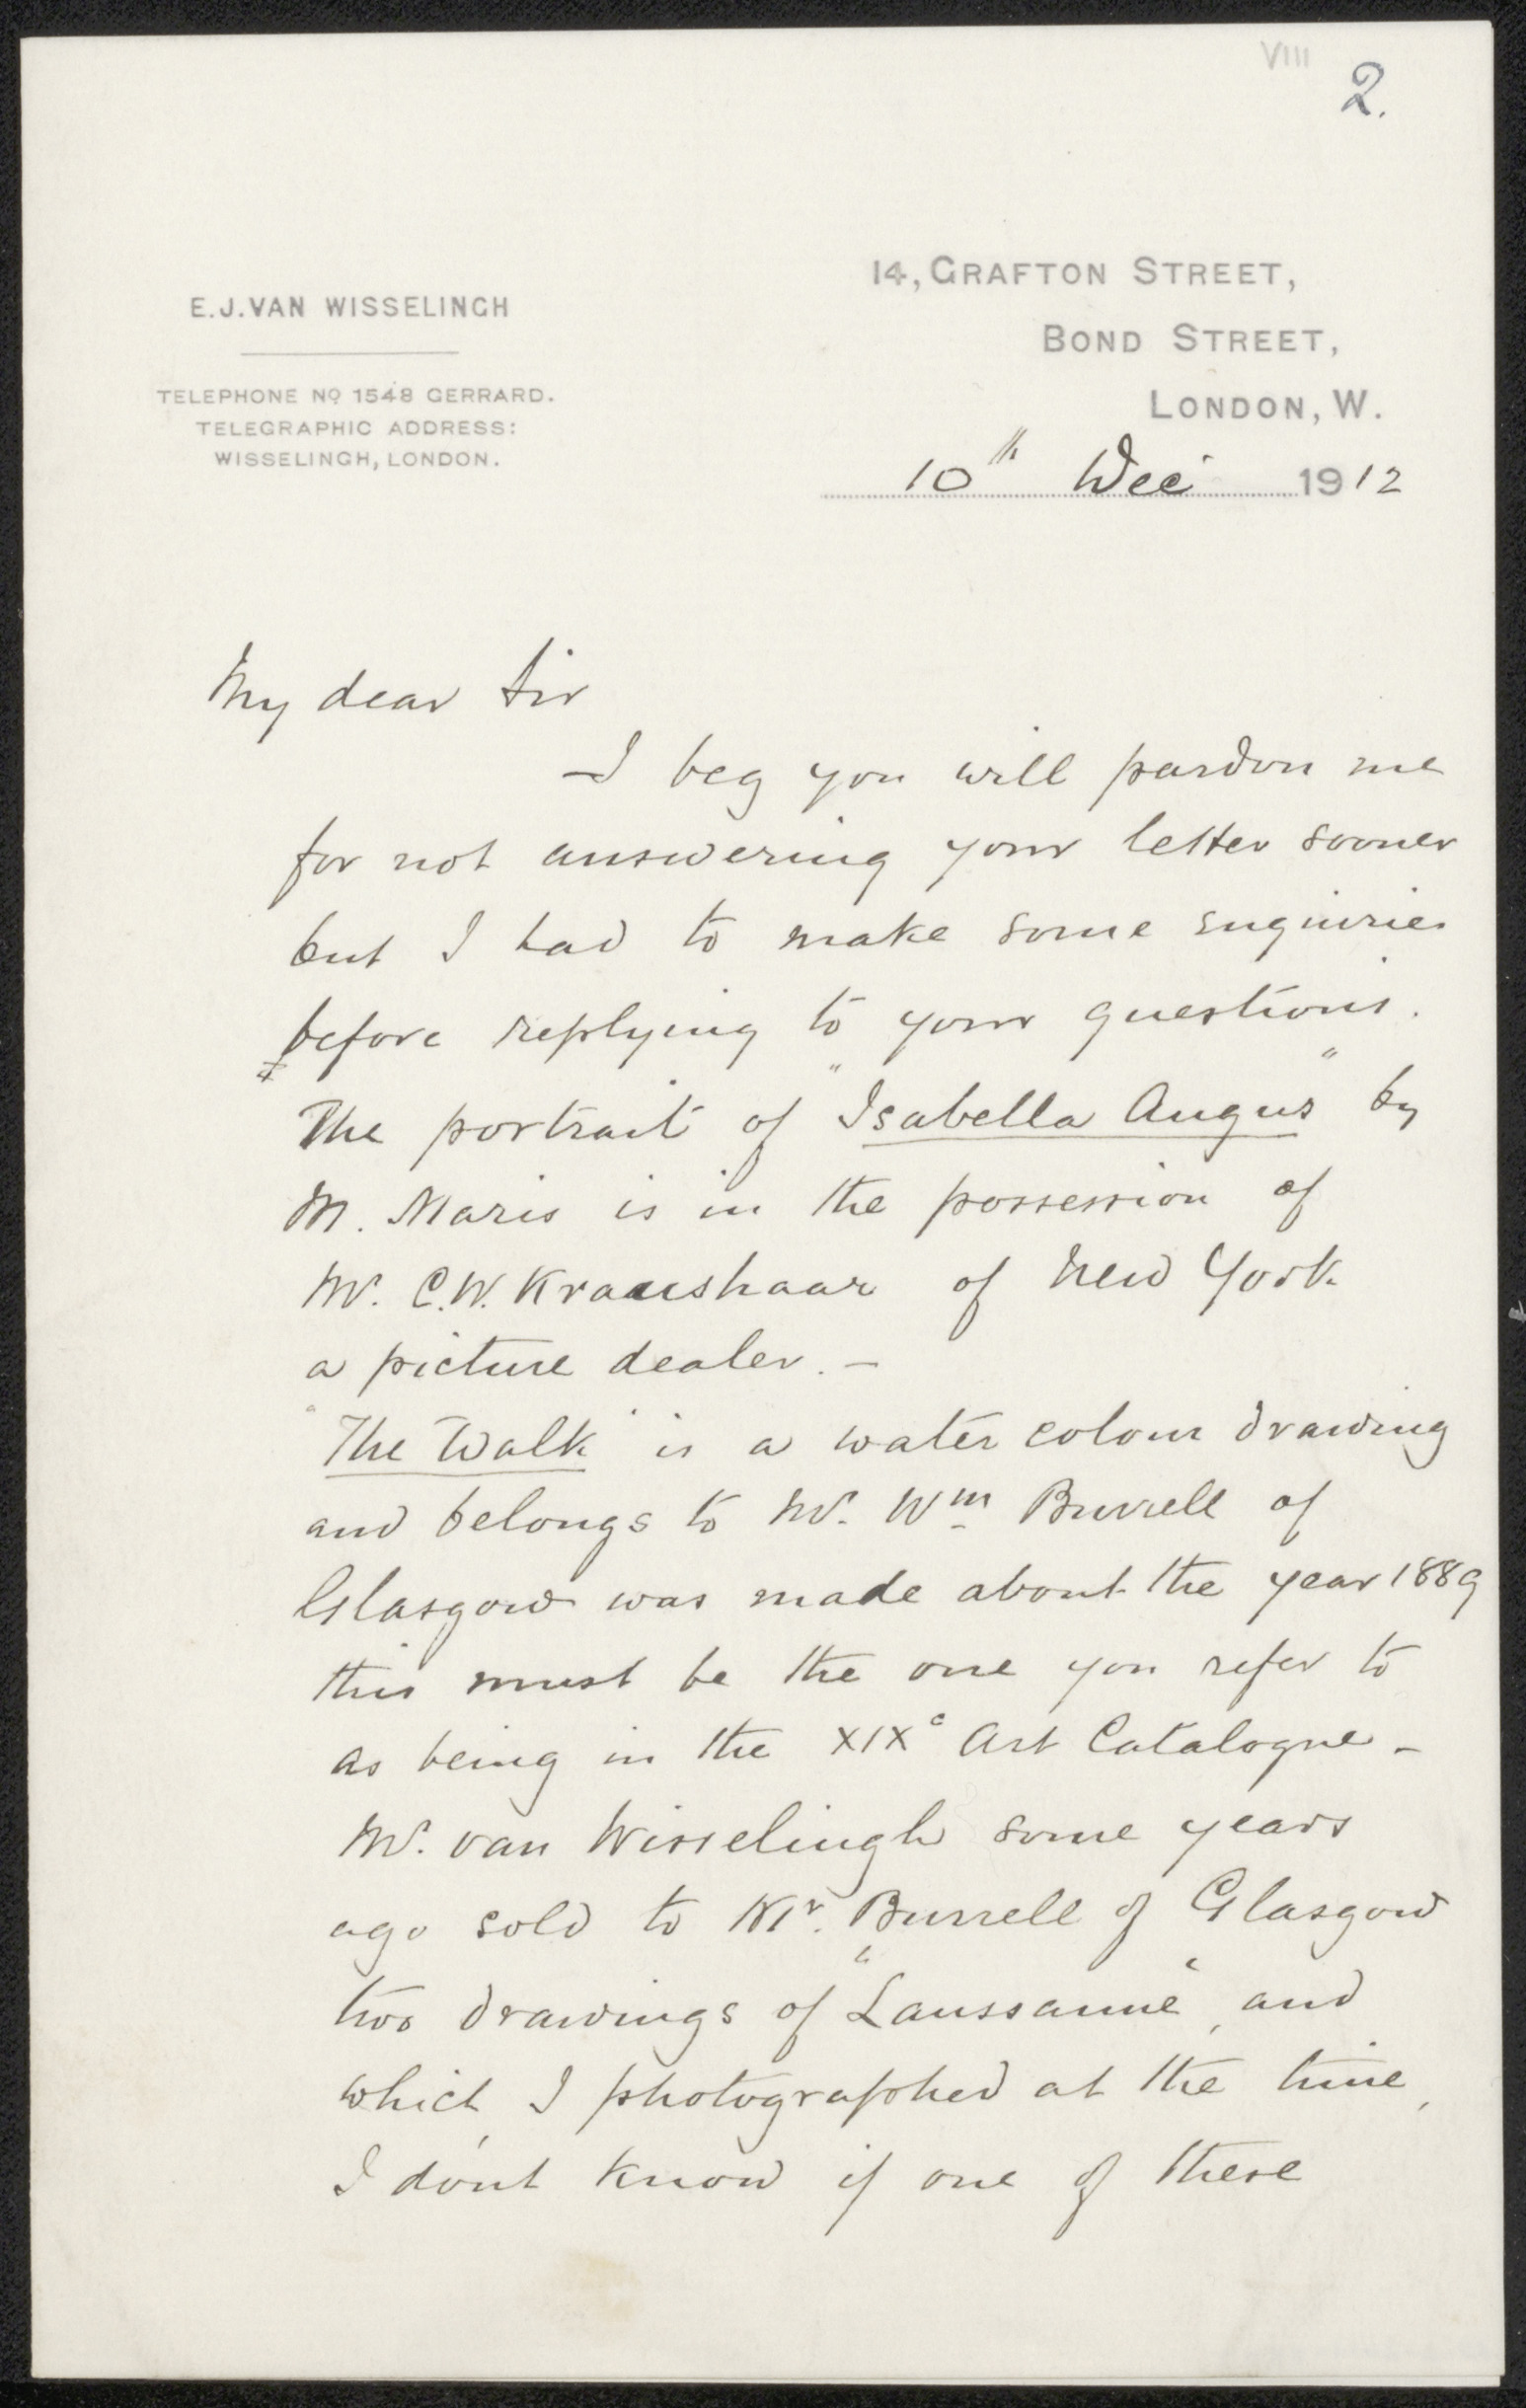 VIII 2.
E.J. VAN WISSELINGH
TELEPHONE NO 1548 GERRARD.
TELEGRAPHIC ADDRESS:
WISSELINGH, LONDON.
14, GRAFTON STREET,
BOND STREET,
LONDON, W.
10th Dec 1912
My dear Sir
I beg you will pardon me
for not answering your letter sooner
but I had to make some enquiries
before replying to your questions.
The portrait of "Isabella Angus" by
M. Maris is in the possession of
Mr. C.W. Kraushaar of New York
a picture dealer. —
"The Walk" is a water colour drawing
and belongs to Mr. Wm Burrell of
Glasgow was made about the year 1889
this must be the one you refer to
as being in the XIXc Art Catalogue -
Mr. van Wisselingh some years
ago sold to Mr. Burrell of Glasgow
two drawings of "Laussanne", and
which I photographed at the time,
I don't know if one of these